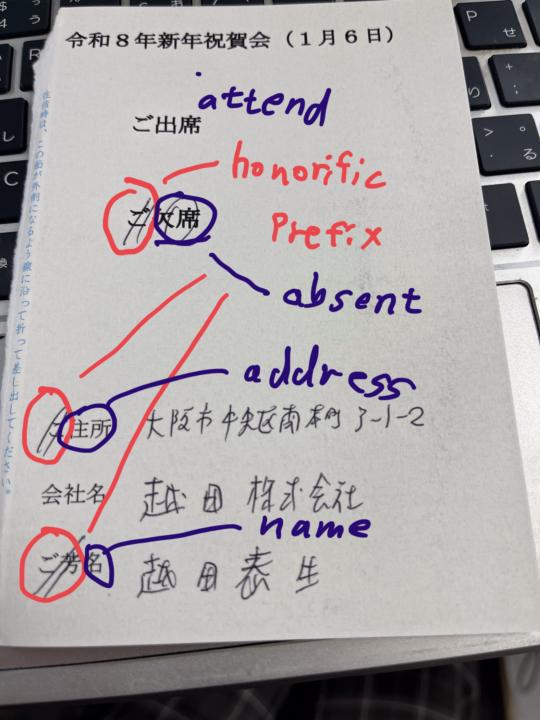 令和8年新年祝賀会（1月6日）
attend
ご出席
honorific
prefix
ご欠席
absent
address
ご住所 大阪市中央区南本町3-1-2
会社名 越田株式会社
name
ご芳名 越田泰生
往信時は、この面が外側になるよう線に沿って折って差し出してください。